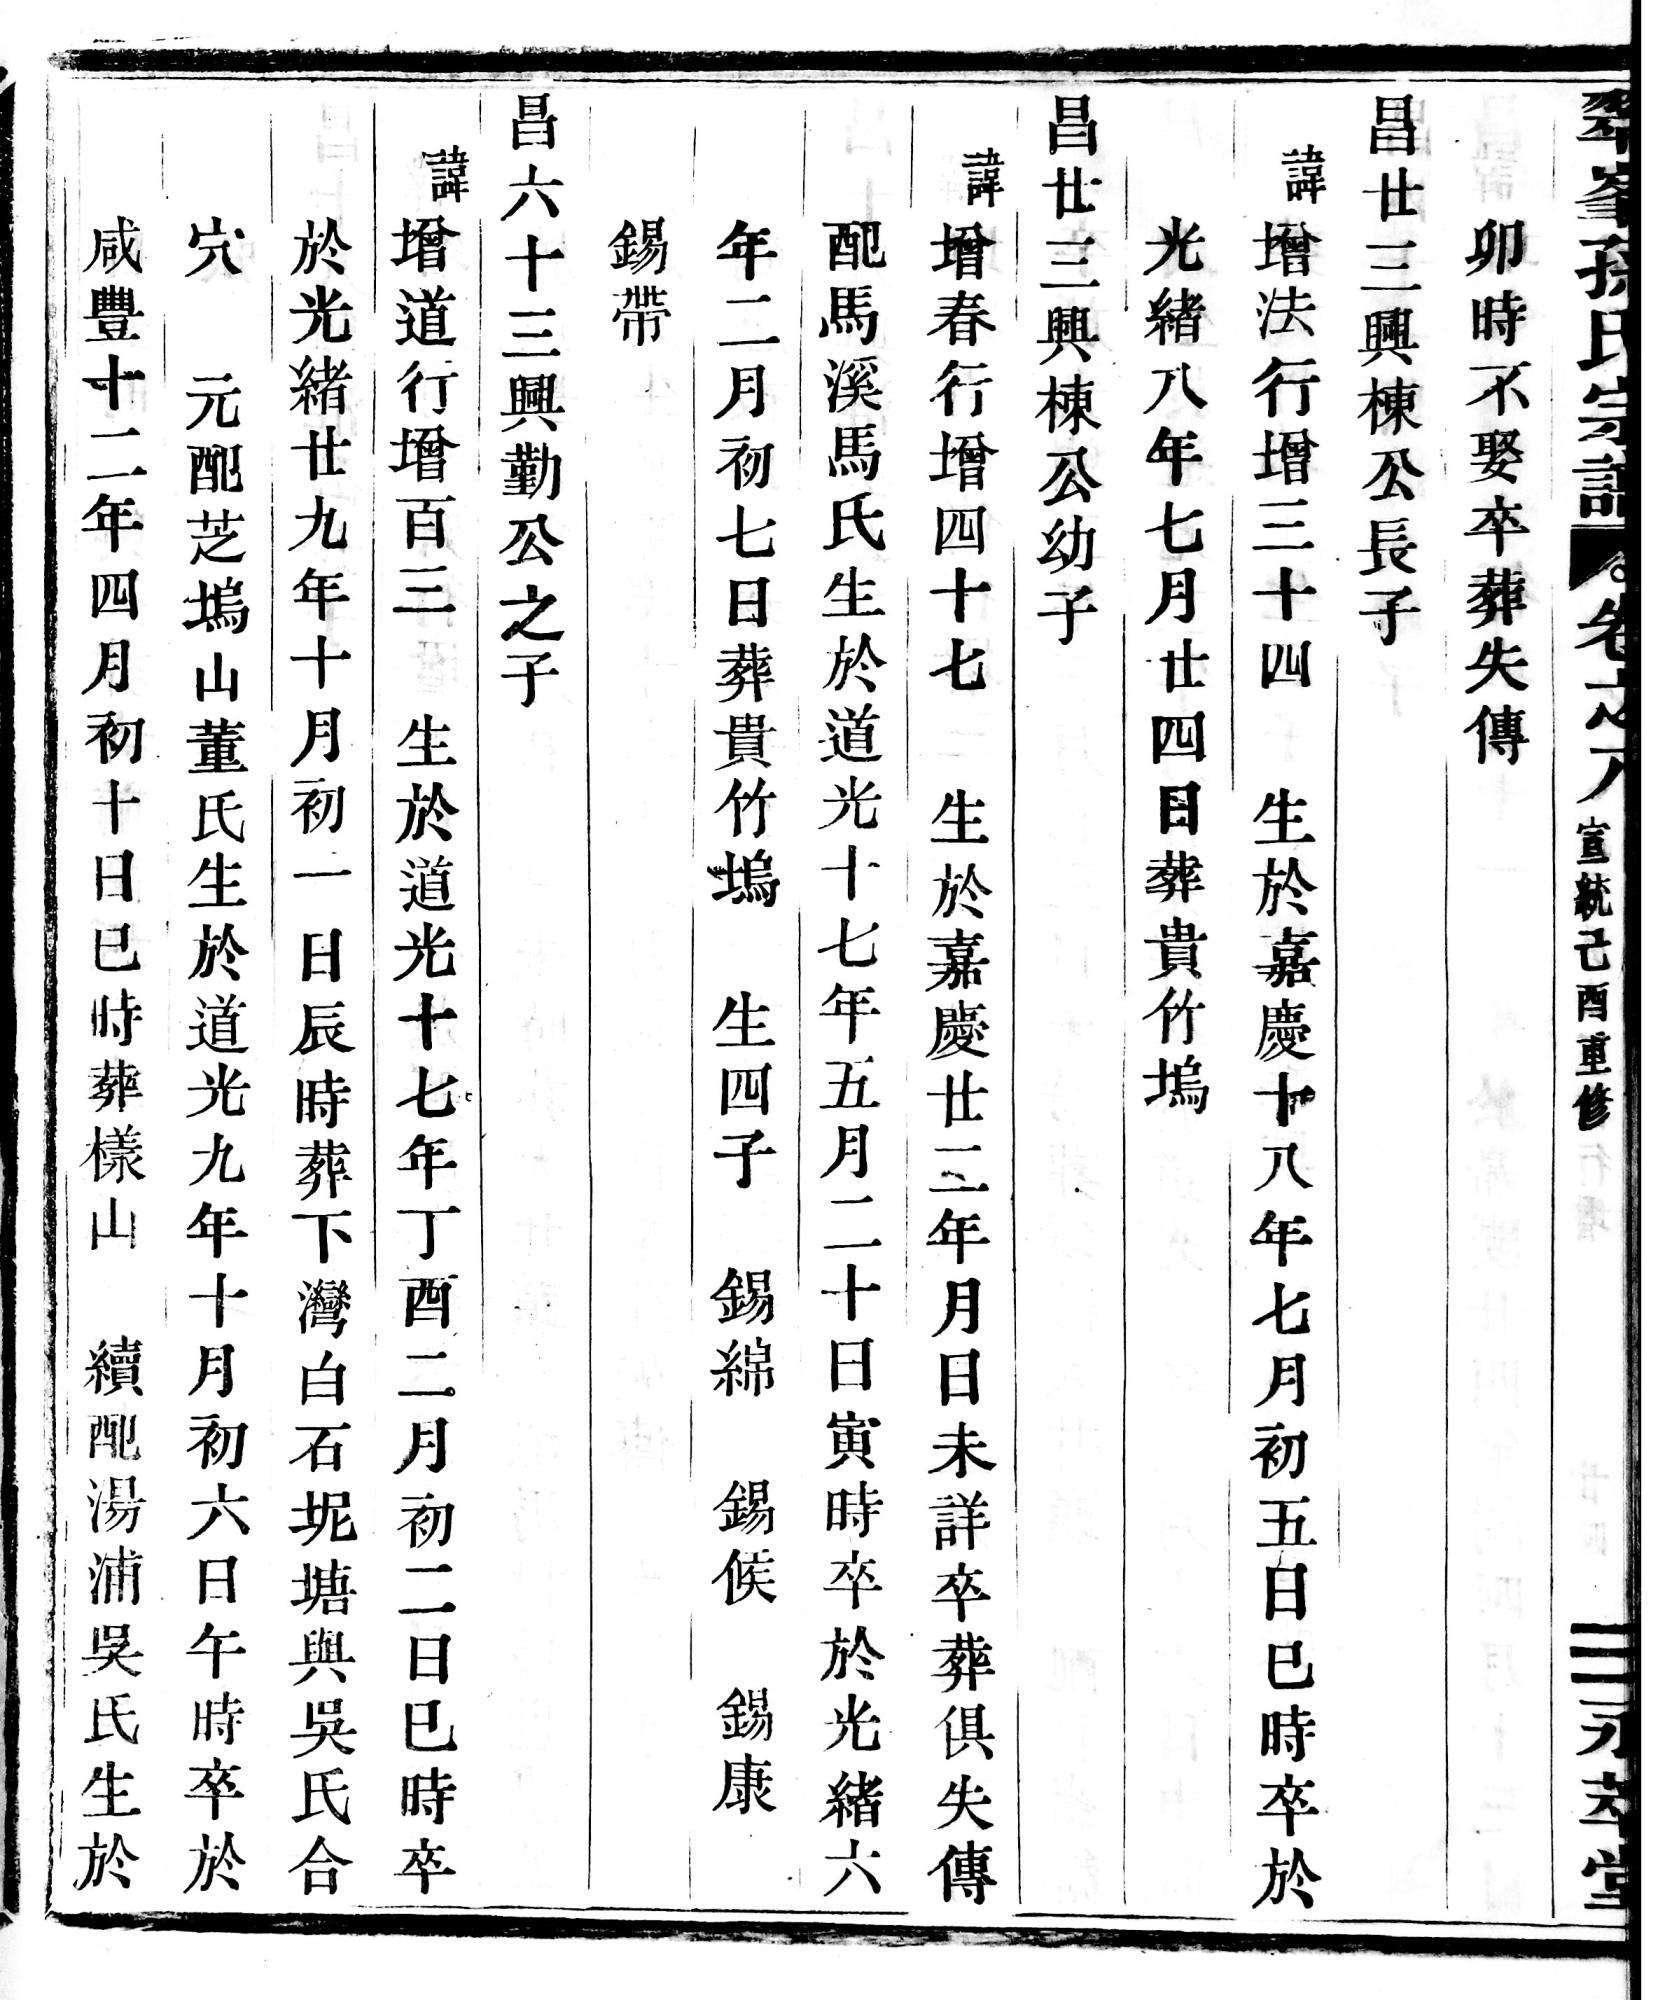 翠峯孫氏宗譜 卷之八 宣統己酉重修 二 永萃堂
卯時不娶卒葬失傳
昌廿三興棟公長子
諱增法行增三十四 生於嘉慶十八年七月初五日巳時卒於
光緒八年七月廿四日葬貴竹塢
昌廿三興棟公幼子
諱增春行增四十七 生於嘉慶廿二年月日未詳卒葬俱失傳
配馬溪馬氏生於道光十七年五月二十日寅時卒於光緒六
年二月初七日葬貴竹塢 生四子 錫綿 錫候 錫康
錫帶
昌六十三興勤公之子
諱增道行增百三 生於道光十七年丁酉二月初二日巳時卒
於光緒廿九年十月初一日辰時葬下灣白石坭塘與吳氏合
穴 元配芝塢山董氏生於道光九年十月初六日午時卒於
咸豐十二年四月初十日巳時葬樣山 續配湯浦吳氏生於